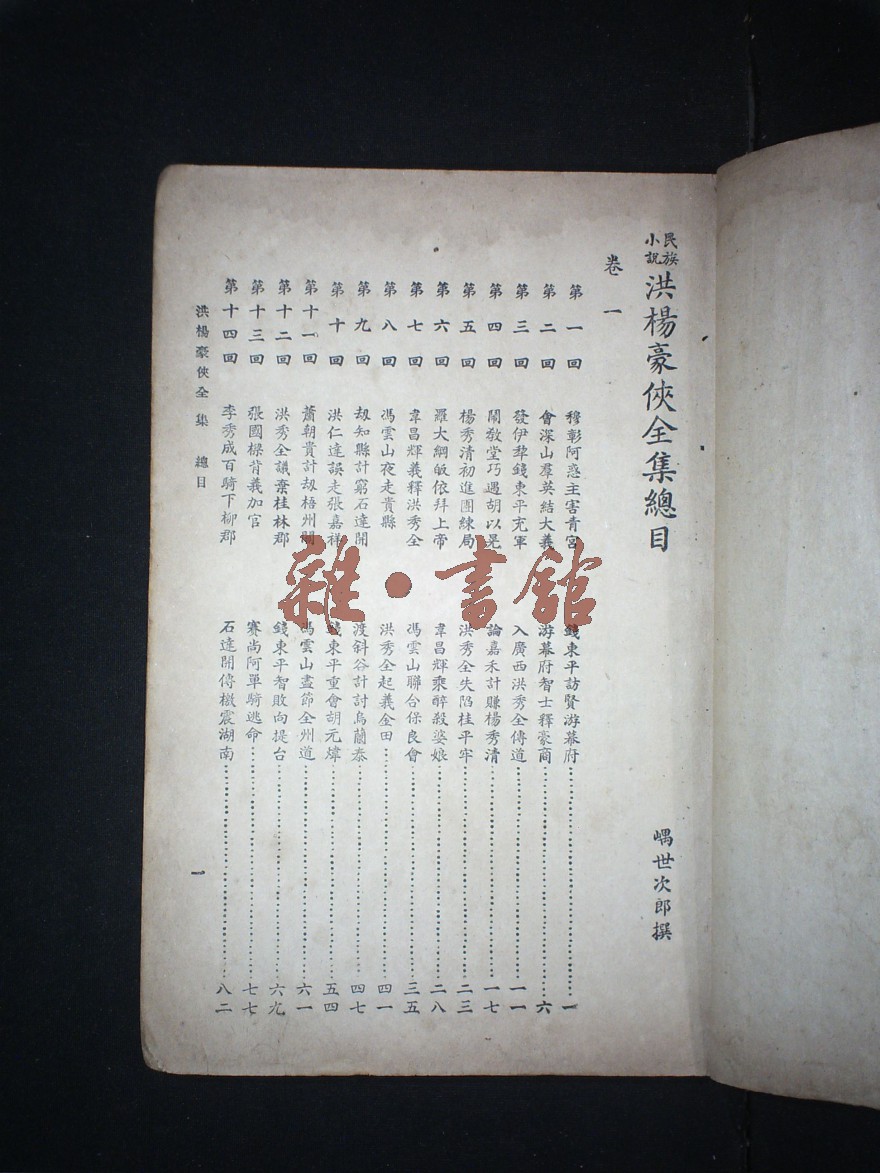 民族小説 洪楊豪俠全集總目 嵎世次郎撰
卷一
第一回 穆彰阿惑主害青宮 錢東平訪賢游幕府 一
第二回 會深山羣英結大義 游幕府智士釋豪商 六
第三回 發伊犂錢東平充軍 入廣西洪秀全傳道 一一
第四回 鬧敎堂巧遇胡以晃 論嘉禾計賺楊秀清 一七
第五回 楊秀清初進團練局 洪秀全失陷桂平牢 二三
第六回 羅大綱皈依拜上帝 韋昌輝乘醉殺婆娘 二八
第七回 韋昌輝義釋洪秀全 馮雲山聯合保良會 三五
第八回 馮雲山夜走貴縣 洪秀全起義金田 四一
第九回 刼知縣計窮石達開 渡斜谷計討烏蘭泰 四七
第十回 洪仁達誤走張嘉祥 錢東平重會胡元煒 五四
第十一回 蕭朝貴計刼梧州關 馮雲山盡節全州道 六一
第十二回 洪秀全議棄桂林郡 錢東平智敗向提台 六九
第十三回 張國樑背義加官 賽尚阿單騎逃命 七七
第十四回 李秀成百騎下柳郡 石達開傳檄震湖南 八二
洪楊豪俠全集 總目 一
雜·書館